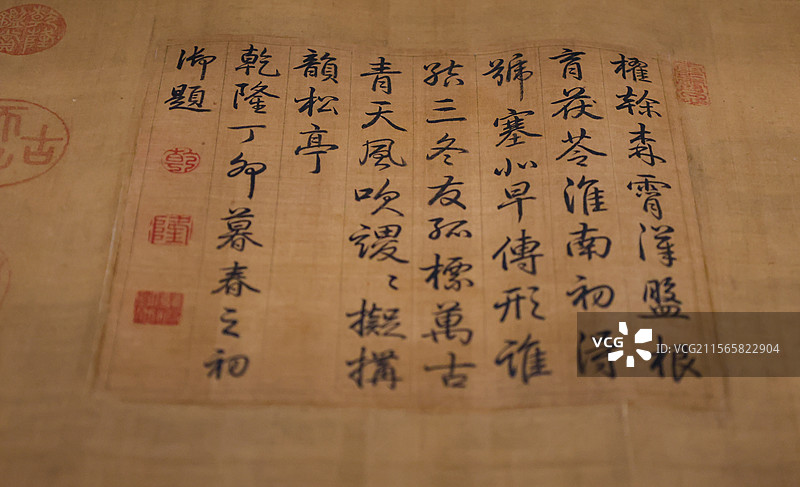 擢榦森霄漢盤根
育茯苓淮南初得
號塞北早傳形誰
結三冬友孤標萬古
青天風吹謖〻擬搆
韻松亭
乾隆丁卯暮春之初
御題
乾
隆
VCG
ID:VCG211565822904